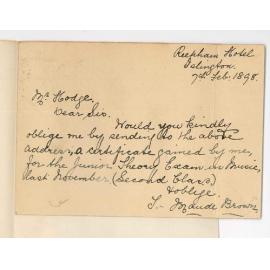 Reepham Hotel
Islington.
7th Feb. 1898.
Mr Hodge.
Dear Sir.
Would you kindly
oblige me by sending to the above
address, a certificate gained by me,
for the Junior Theory Exam. in Music,
last November, (Second Class)
& oblige.
Maude Brown